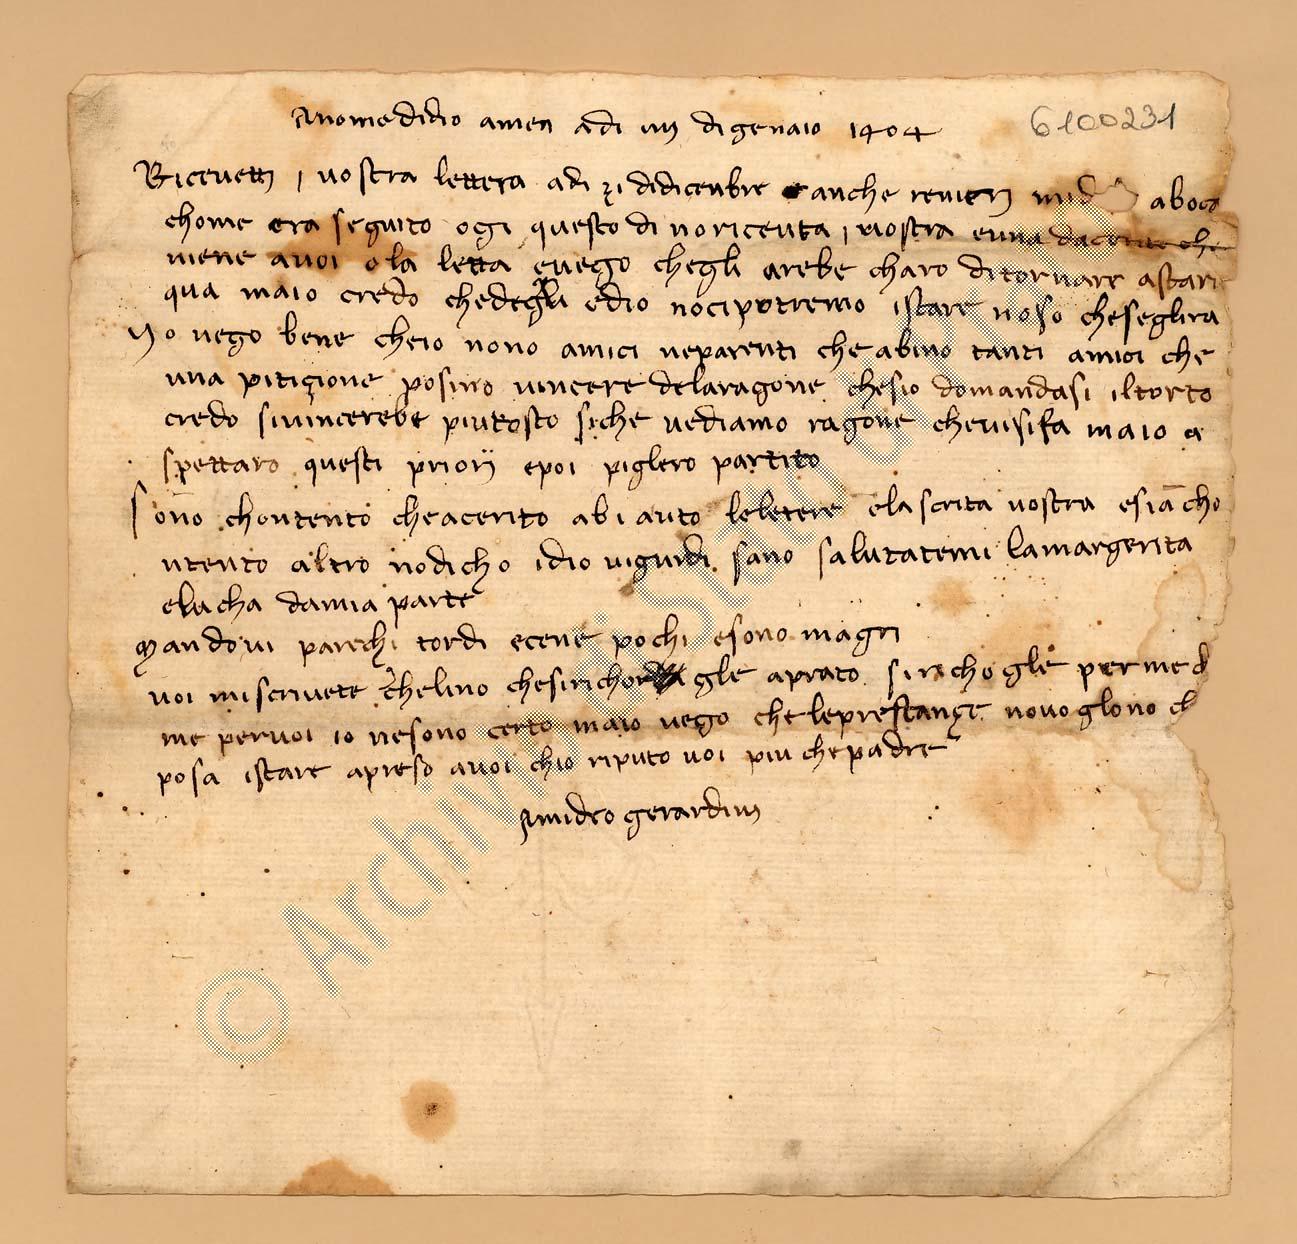 Anome didio amen adi iiij di genaio 1404
6100231
Ricevetti 1 vostra lettera adi 21 didicenbre e anche a boca
chome era seguito ogi questo di no ricevta 1 vostra e una
viene a voi o la letta e vego chegli arebe charo di tornare a stare
qua maio credo che degli e dio noci potremo istare no so che seglira
No vego bene cheio nono amici ne parenti che abino tanti amici che
una pitigione posino vincere dela ragone che sio domandasi il torto
credo si vincerebe piutosto si che vediamo ragone che vi si fa maio a
spettaro questi priorj e poi piglero partito
Sono chontento che acerito abi auto le letere e la scrita vostra e sia cho
ntento altro no dicho idio vi guardi sano salutatemi la margerita
e la cha da mia parte
Mandovi parechi tordi e cene pochi e sono magri
voi mi scrivete chelino che si richo gle a prato si richogle per me
me per voi io ne sono certo maio vego che le prestançe no voglono ch
posa istare apreso a voi chio riputo voi piu che padre
Amideo gerardini
© Archivio di Stato di Prato